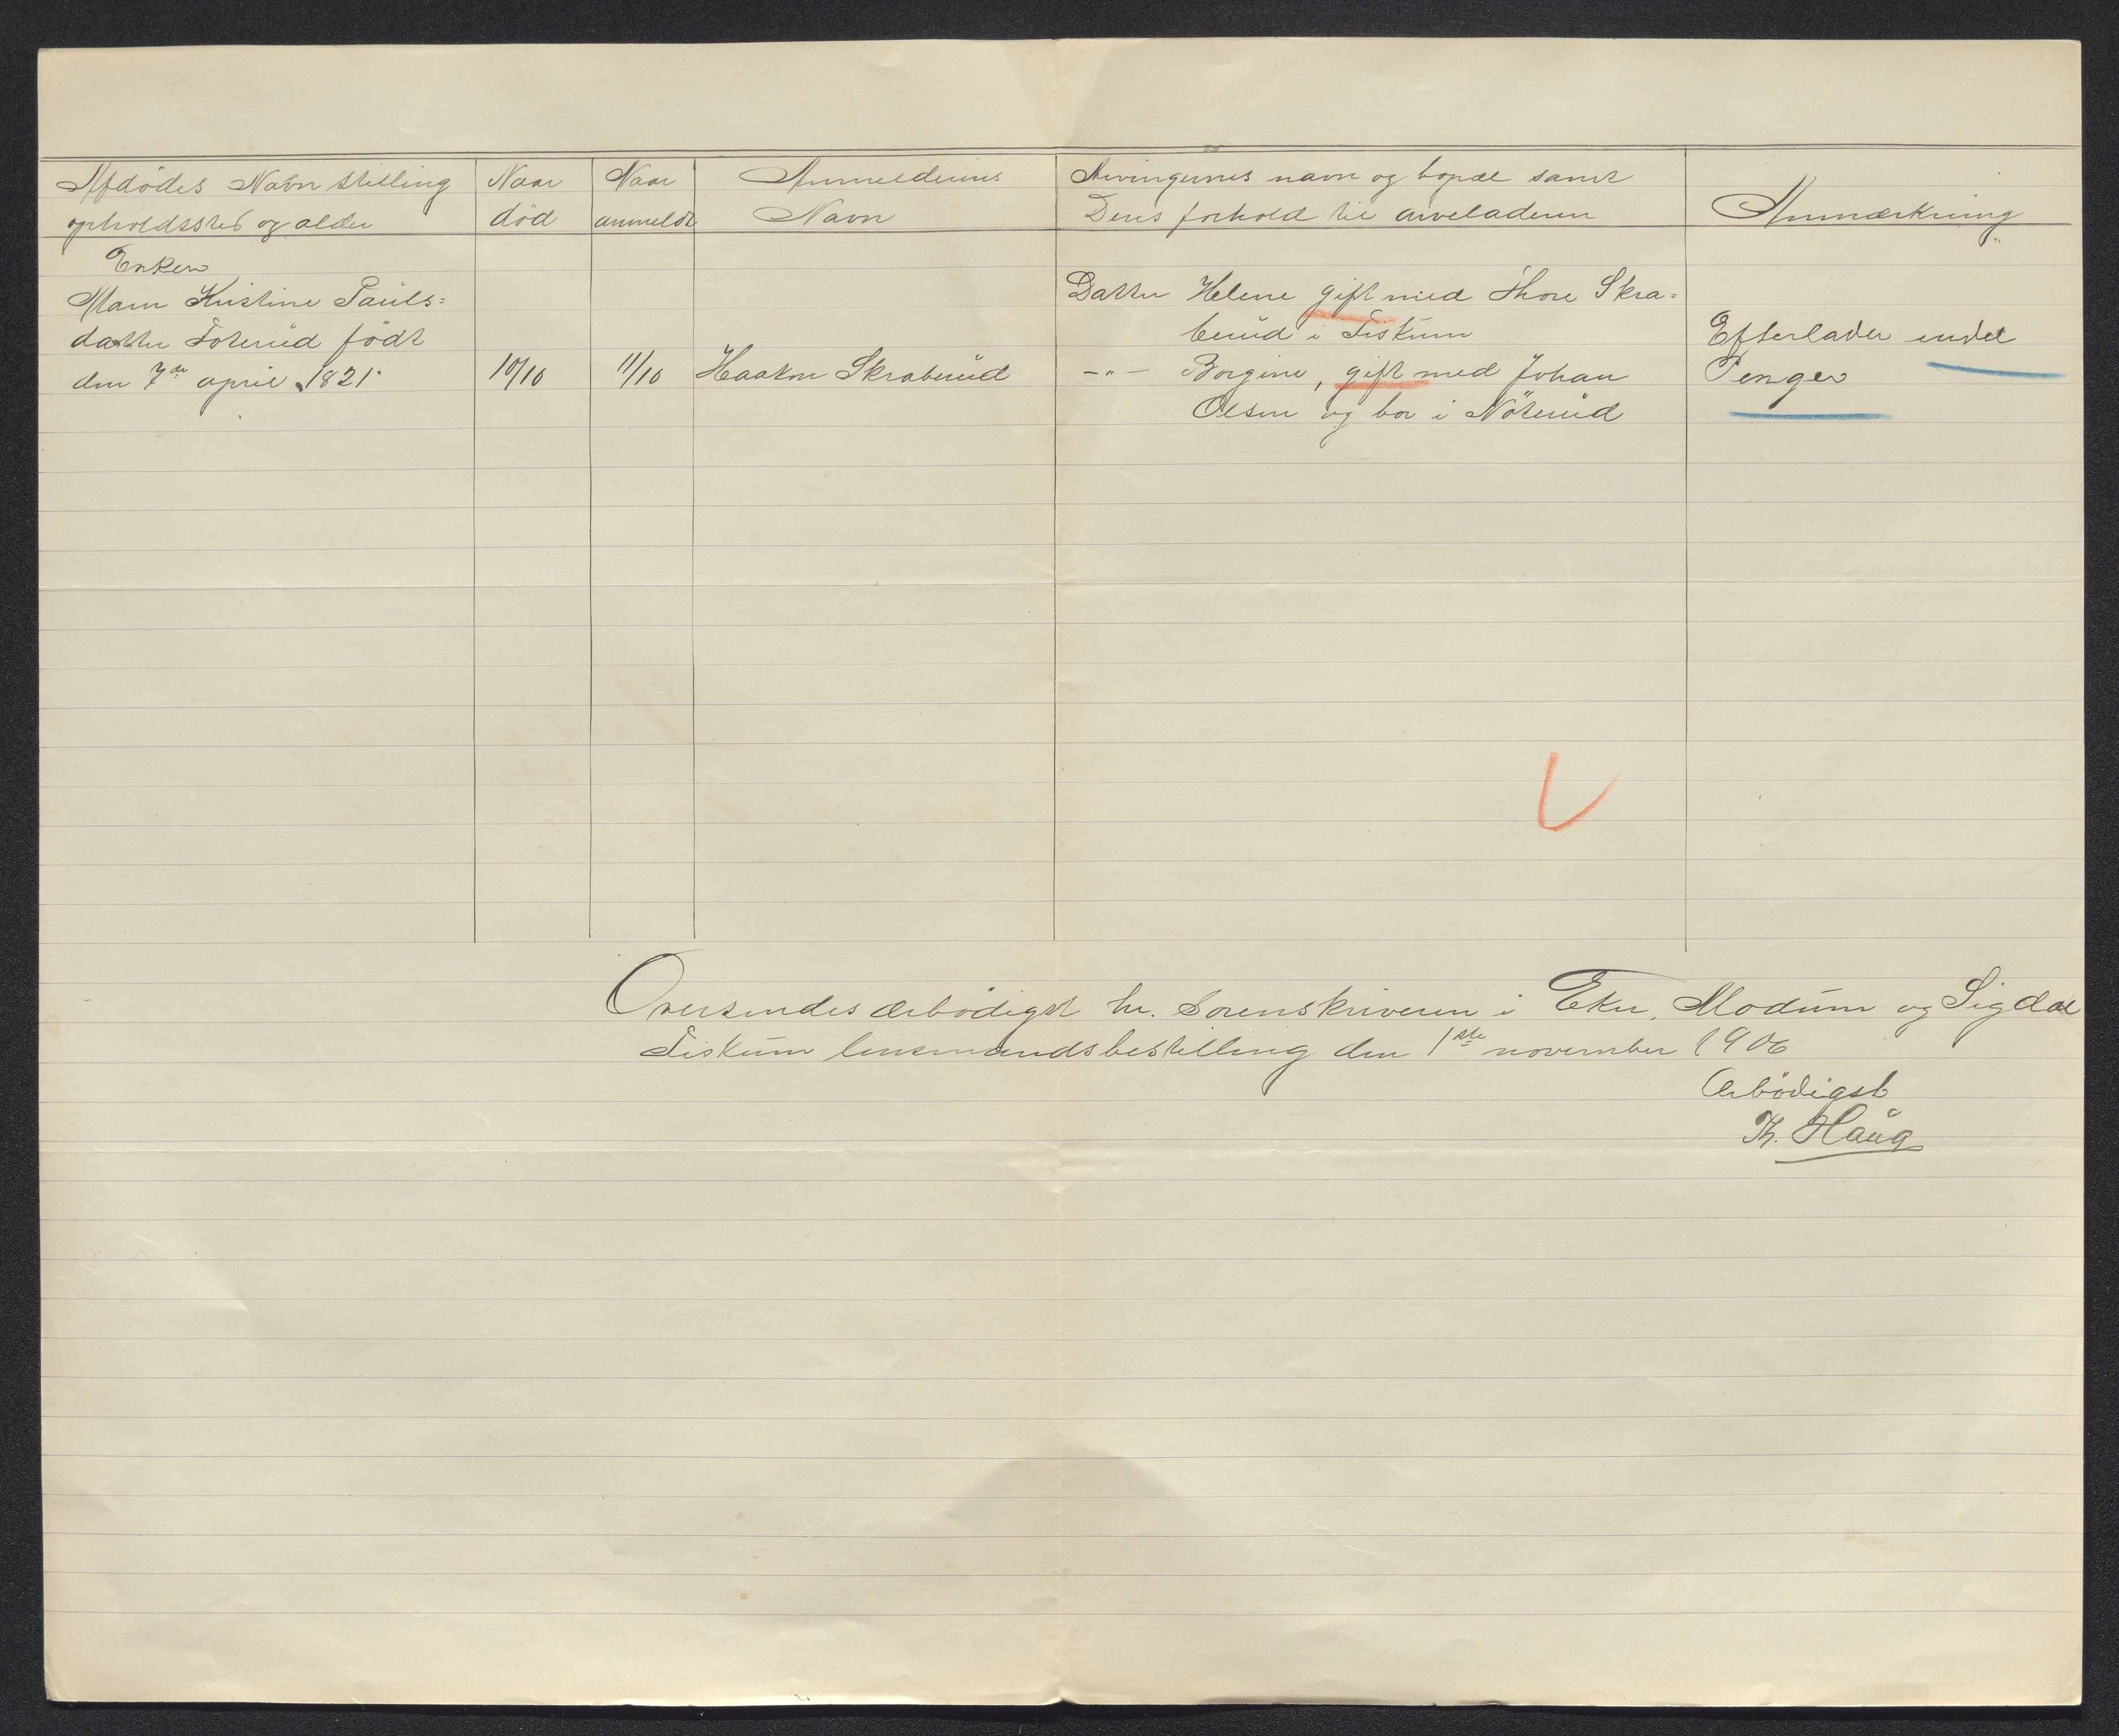 Afdödes Navn stilling
opholdssted og alder
Naar
död
Naar
anmeldt
Anmelderens
Navn
Arvingernes navn og bopæl samt
Deres forhold til arveladeren
Anmærkning
Enken
Maren Kristine Pauls=
datter Foterud födt
den 7de april 1821
10/10
11/10
Haakon Skraberud
Datter Helene gift med Thore Skra=
berud i Fiskum
–"– Borgine, gift med Johan
Olsen og bor i Nöterud
Efterlader endel
Penger
Oversendes ærbödigst hr. Sorenskriveren i Eker, Modum og Sigdal
Fiskum lensmandsbestilling den 1ste november 1906
Ærbödigst
Th. Haug